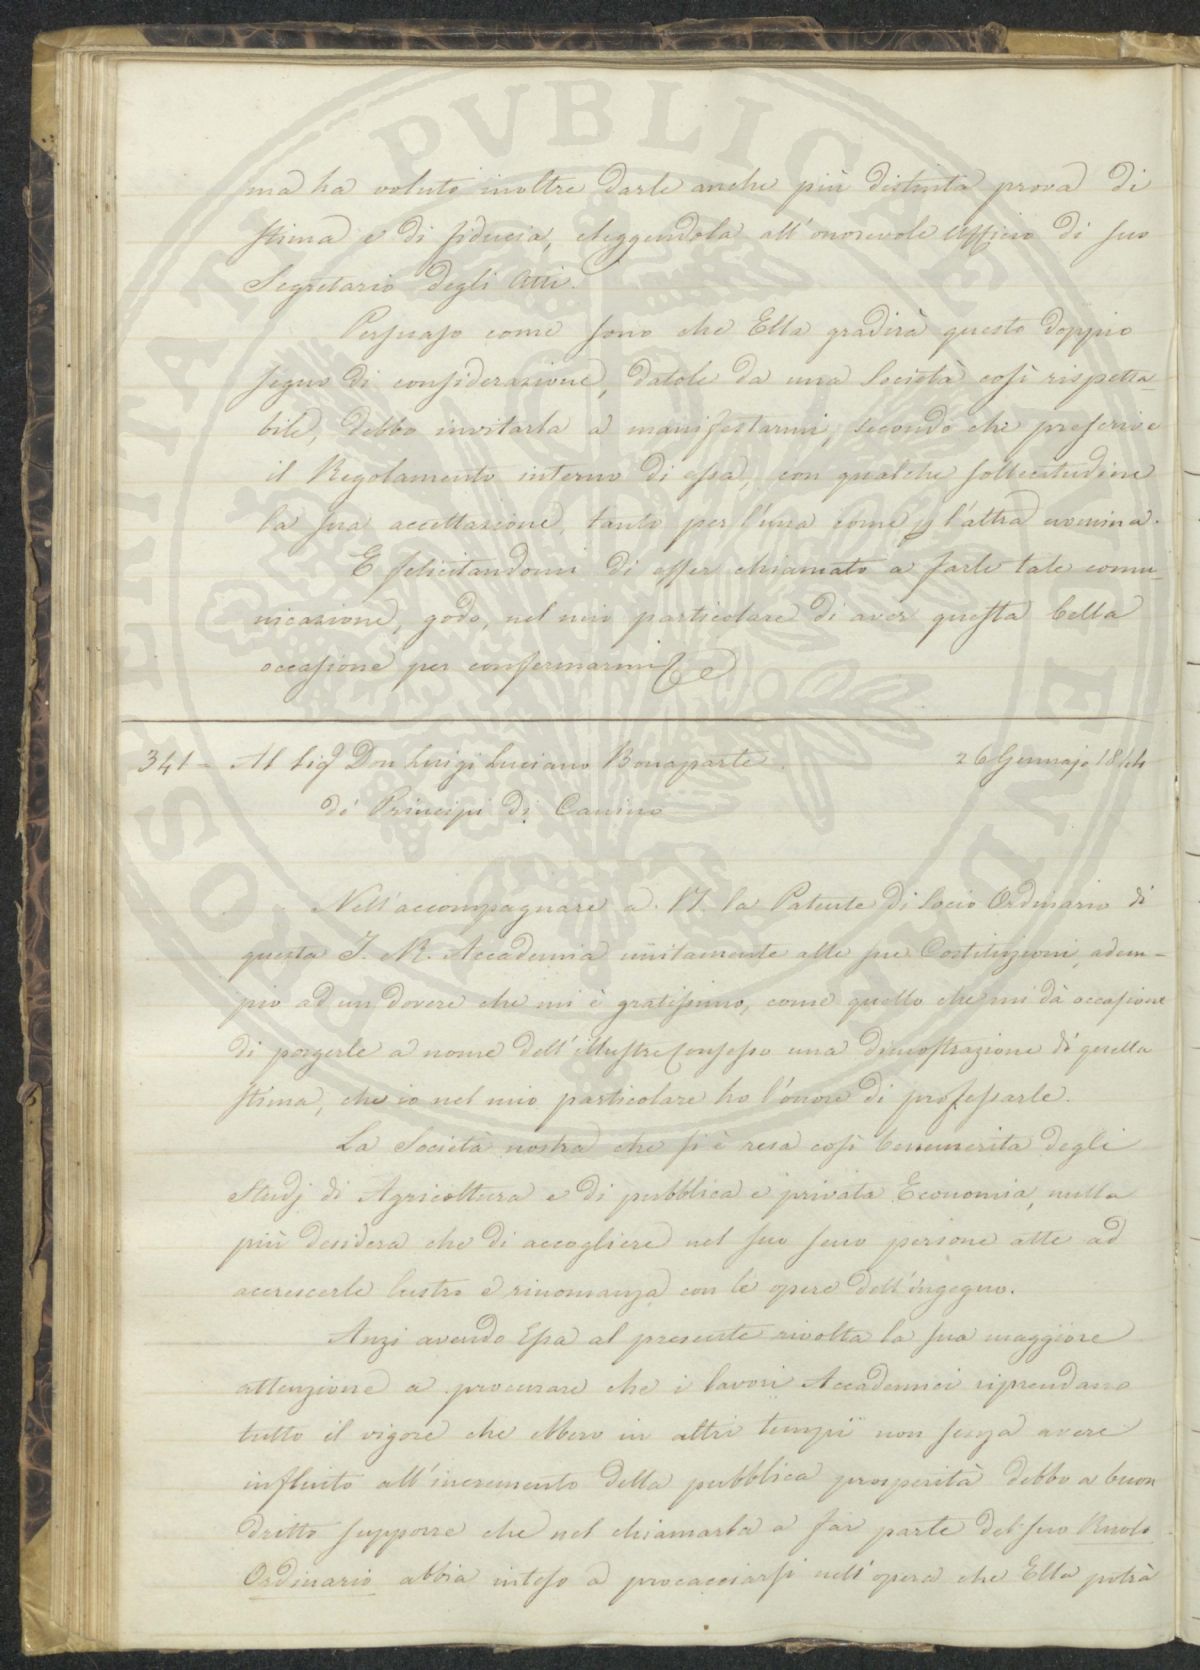 ma ha voluto inoltre darle anche più distinta prova di
stima e di fiducia, eleggendola all'onorevole Uffizio di suo
Segretario degli Atti.
Persuaso come sono che Ella gradirà questo doppio
segno di considerazione, datole da una Società così rispetta-
bile, debbo invitarla a manifestarmi, secondo che prescrive
il Regolamento interno di essa, con qualche sollecitudine
la sua accettazione, tanto per l'una come p l'altra nomina.
E felicitandomi di esser chiamato a farle tale comu-
nicazione, godo, nel mio particolare di aver questa bella
occasione per confermarmi
341 = Al Sigr Don Luigi Luciano Bonaparte 26 Gennajo 1844
de' Principi di Canino
Nell'accompagnare a V.S. la Patente di Socio Ordinario di
questa I. R. Accademia unitamente alle sue Costituzioni, adem-
pio ad un dovere che mi è gratissimo, come quello che mi dà occasione
di porgerle a nome dell'illustre Consesso una dimostrazione di quella
stima, che io nel mio particolare ho l'onore di professarle.
La Società nostra che si è resa così benemerita degli
Studj di Agricoltura e di pubblica e privata Economia, nulla
più desidera che di accogliere nel suo seno persone atte ad
accrescerle lustro e rinomanza con le opere dell'ingegno.
Anzi avendo Essa al presente rivolta la sua maggiore
attenzione a procurare che i lavori Accademici riprendano
tutto il vigore che ebbero in altri tempi non senza avere
influito all'incremento della pubblica prosperità debbo a buon
dritto supporre che nel chiamarla a far parte del suo Ruolo
Ordinario abbia inteso a procacciarsi nell'opera che Ella potrà
PROSPERITATI PVBLICAE